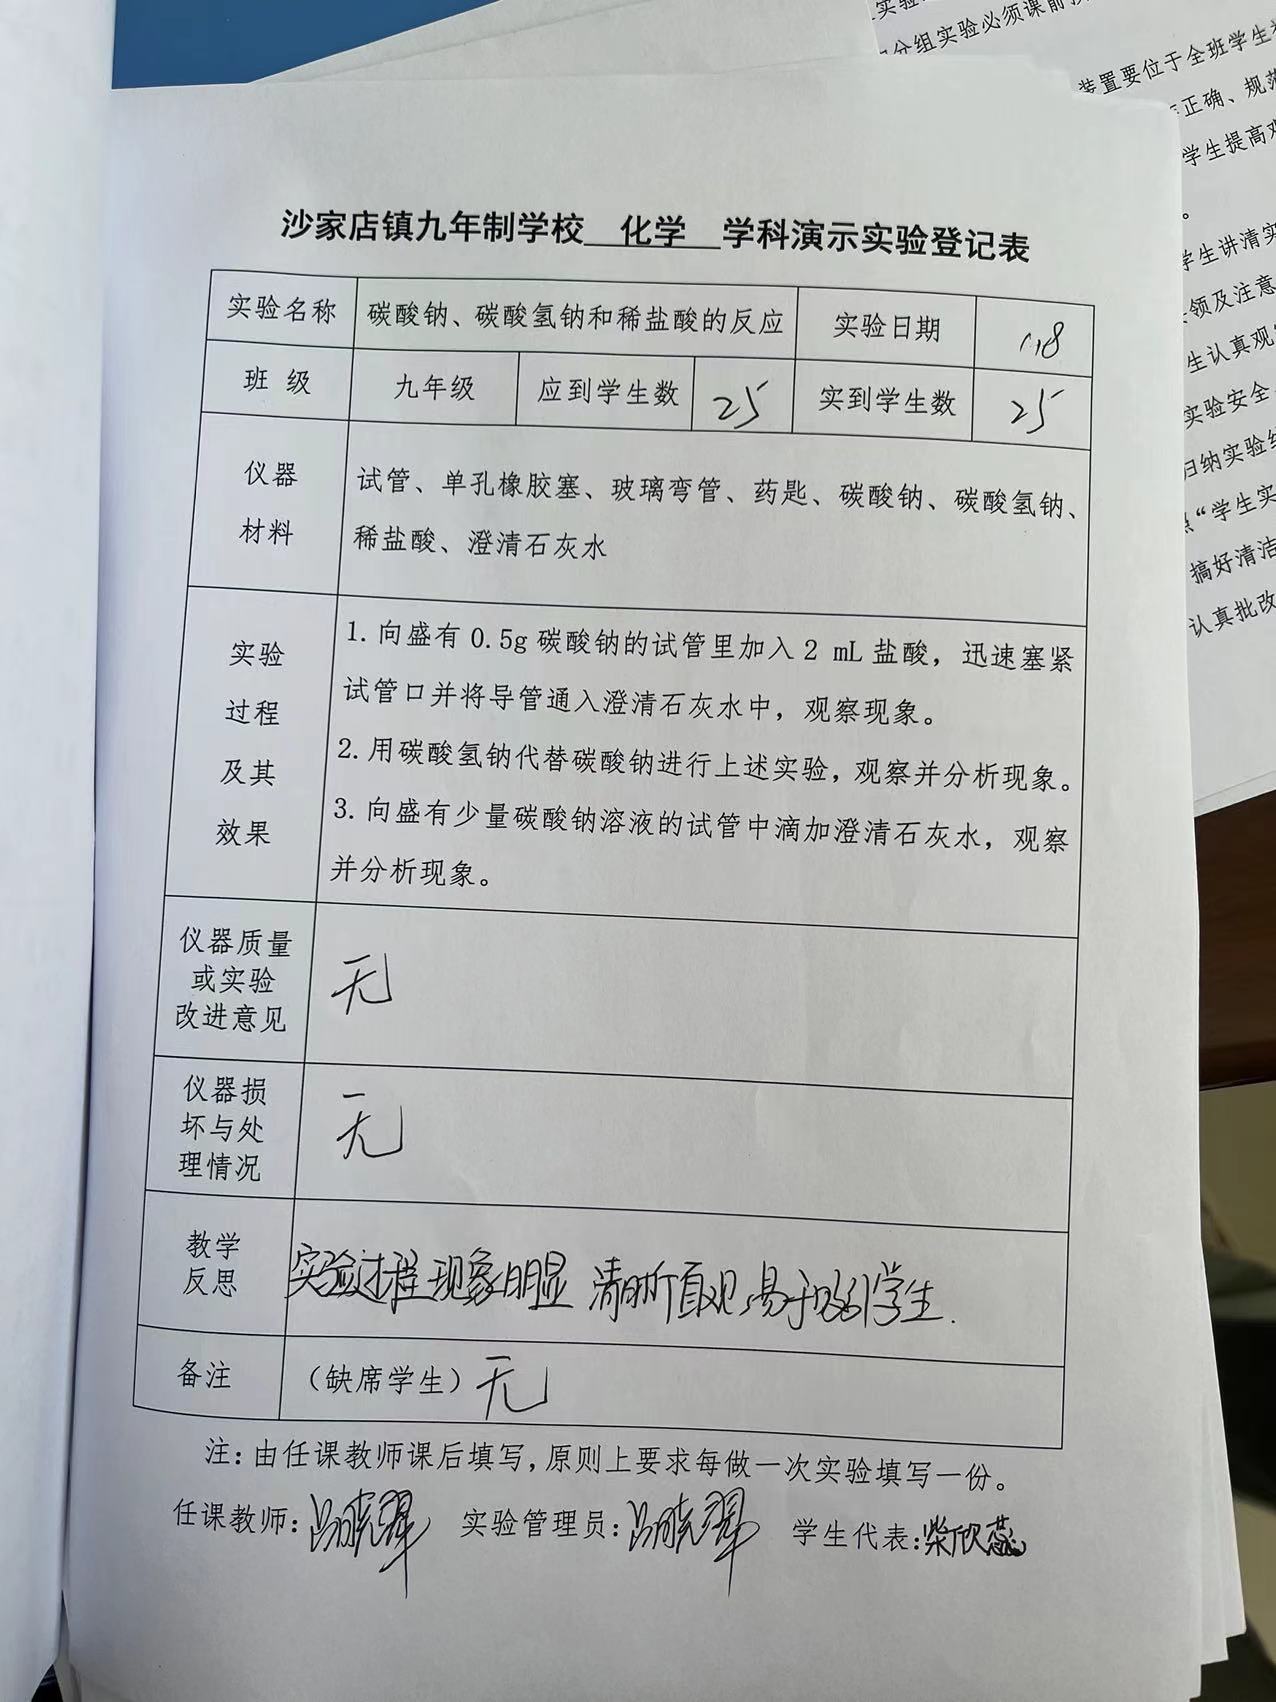 实验
分组实验必须课前
装置要位于全班学生
正确、规范
学生提高
学生讲清实
领及注意
生认真观
实验安全
归纳实验
“学生实
搞好清洁
认真批改
沙家店镇九年制学校 化学 学科演示实验登记表
实验名称 碳酸钠、碳酸氢钠和稀盐酸的反应 实验日期
班 级 九年级 应到学生数 25 实到学生数 25
仪器
材料
试管、单孔橡胶塞、玻璃弯管、药匙、碳酸钠、碳酸氢钠、
稀盐酸、澄清石灰水
实验
过程
及其
效果
1.向盛有 0.5g 碳酸钠的试管里加入 2 mL 盐酸，迅速塞紧
试管口并将导管通入澄清石灰水中，观察现象。
2.用碳酸氢钠代替碳酸钠进行上述实验，观察并分析现象。
3.向盛有少量碳酸钠溶液的试管中滴加澄清石灰水，观察
并分析现象。
仪器质量
或实验
改进意见
无
仪器损
坏与处
理情况
无
教学
反思
实验过程现象明显 清晰直观,易于吸引学生.
备注 （缺席学生）无
注：由任课教师课后填写，原则上要求每做一次实验填写一份。
任课教师： 实验管理员： 学生代表：柴欣蕊